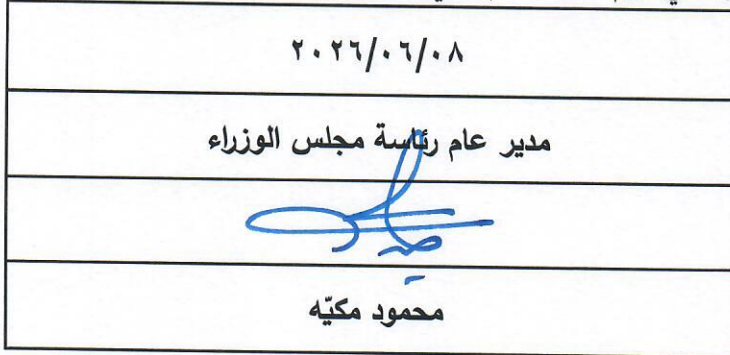 ٢٠٢٦/٠٦/٠٨
مدير عام رئاسة مجلس الوزراء
محمود مكيّه